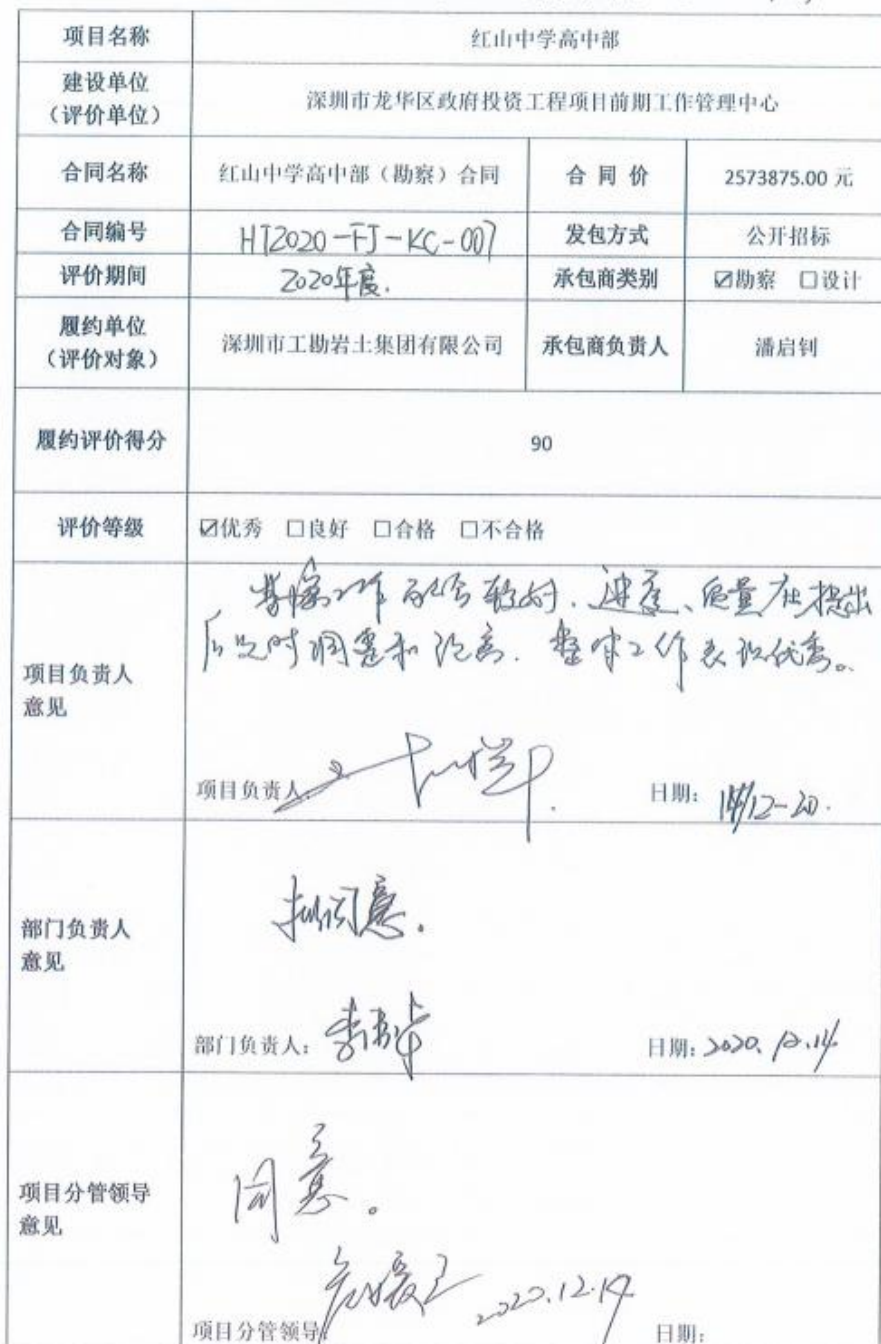 项目名称 红山中学高中部
建设单位
（评价单位） 深圳市龙华区政府投资工程项目前期工作管理中心
合同名称 红山中学高中部（勘察）合同 合同价 2573875.00 元
合同编号 HT2020-FJ-KC-007 发包方式 公开招标
评价期间 2020年度. 承包商类别 ☑勘察 □设计
履约单位
（评价对象） 深圳市工勘岩土集团有限公司 承包商负责人 潘启钊
履约评价得分 90
评价等级 ☑优秀 □良好 □合格 □不合格
工作配合较好、进度、质量在提出
后及时调整和 整体工作表现优秀。
项目负责人
意见
项目负责人: 日期: 14/12-20.
同意.
部门负责人
意见
部门负责人: 日期: 2020.12.14
同意。
项目分管领导
意见
2020.12.14
项目分管领导: 日期: